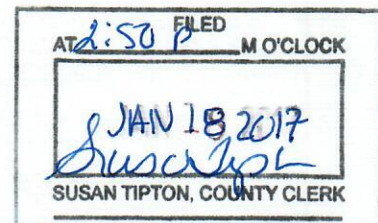 FILED
AT 2:50 P M O'CLOCK
JAN 18 2017
Susan Tipton
SUSAN TIPTON, COUNTY CLERK